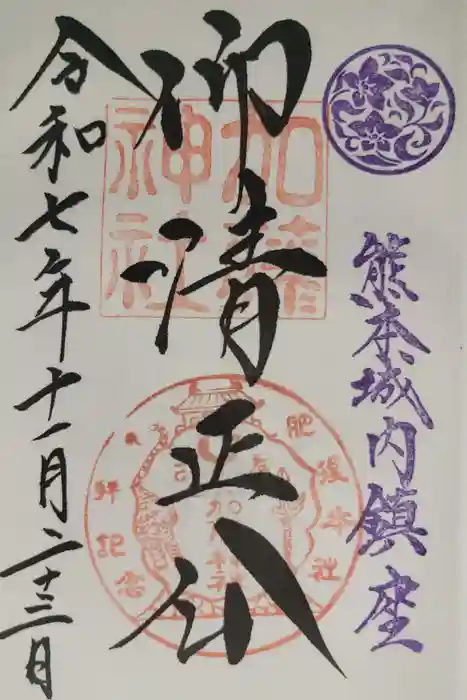 熊本城内鎮座
仰清正公
加藤神社
肥後本社
拝記念
令和七年十一月二十三日